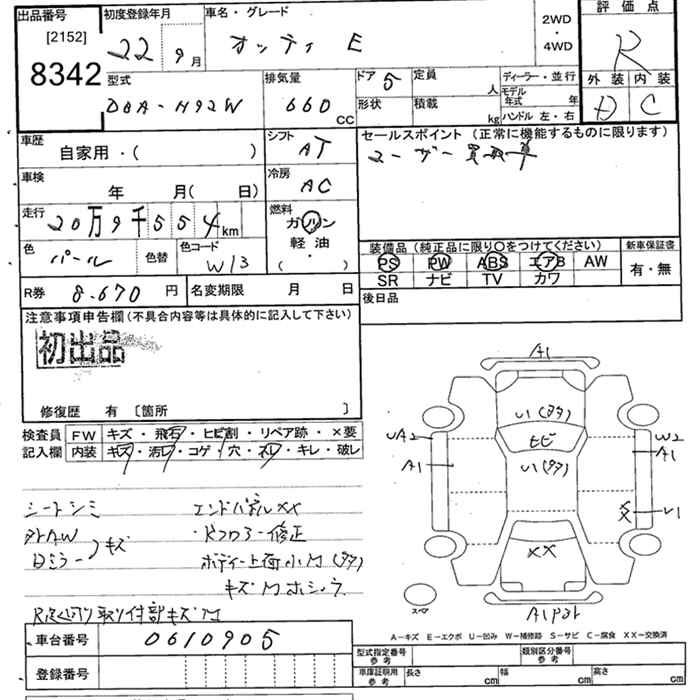 出品番号 初度登録年月 車名・グレード 2WD・4WD 評価点
[2152] 22 9月 オッティ E R
8342
型式 排気量 ドア 5 定員 人 ディーラー・並行 外装 内装
DBA-H92W 660 CC 形状 積載 kg モデル年式 年 D C
ハンドル 左・右
車歴 シフト セールスポイント (正常に機能するものに限ります)
自家用・( ) AT ユーザー買取車
車検 冷房
年 月( 日) AC
走行 燃料
20万9千554km ガソリン
軽油
( ・ )
色 色替 色コード 装備品 (純正品に限り○をつけてください) 新車保証書
パール W13 PS PW ABS エアB AW 有・無
SR ナビ TV カワ
R券 8.670 円 名変期限 月 日 後日品
注意事項申告欄 (不具合内容等は具体的に記入して下さい)
初出品
修復歴 有 〔箇所 〕
検査員 FW キズ・飛石・ヒビ割・リペア跡・×要
記入欄 内装 キズ・汚レ・コゲ・穴・ネレ・キレ・破レ
シートシミ エンドパネルXX
外AW ・Rフロアー修正
日ミラー キズ ボディー上面小M(多タ)
キズM
取り付部キズM
A1
いし(多タ)
UA2 ヒビ W2
A1 いし(多タ) A1
XX
スペア
車台番号 0610905
登録番号
A-キズ E-エクボ U-凹み W-補修跡 S-サビ C-腐食 XX-交換済
型式指定番号 参考 類別区分番号 参考
車庫証明用 参考 長さ cm 幅 cm 高さ cm